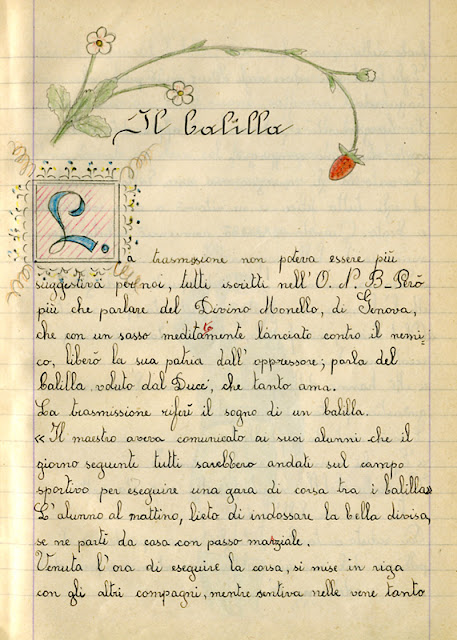 Il balilla
La trasmissione non poteva essere più
suggestiva per noi, tutti iscritti nell'O. N. B_ Però
più che parlare del Divino Monello, di Genova,
che con un sasso meditatamente lanciato contro il nemi-
co, liberò la sua patria dall'oppressore; parla del
balilla voluto dal Duce, che tanto ama.
La trasmissione riferì il sogno di un balilla.
« Il maestro aveva comunicato ai suoi alunni che il
giorno seguente tutti sarebbero andati sul campo
sportivo per eseguire una gara di corsa tra i balilla»
L'alunno al mattino, lieto di indossare la bella divisa,
se ne partì da casa con passo marziale.
Venuta l'ora di eseguire la corsa, si mise in riga
con gli altri compagni, mentre sentiva nelle vene tanto